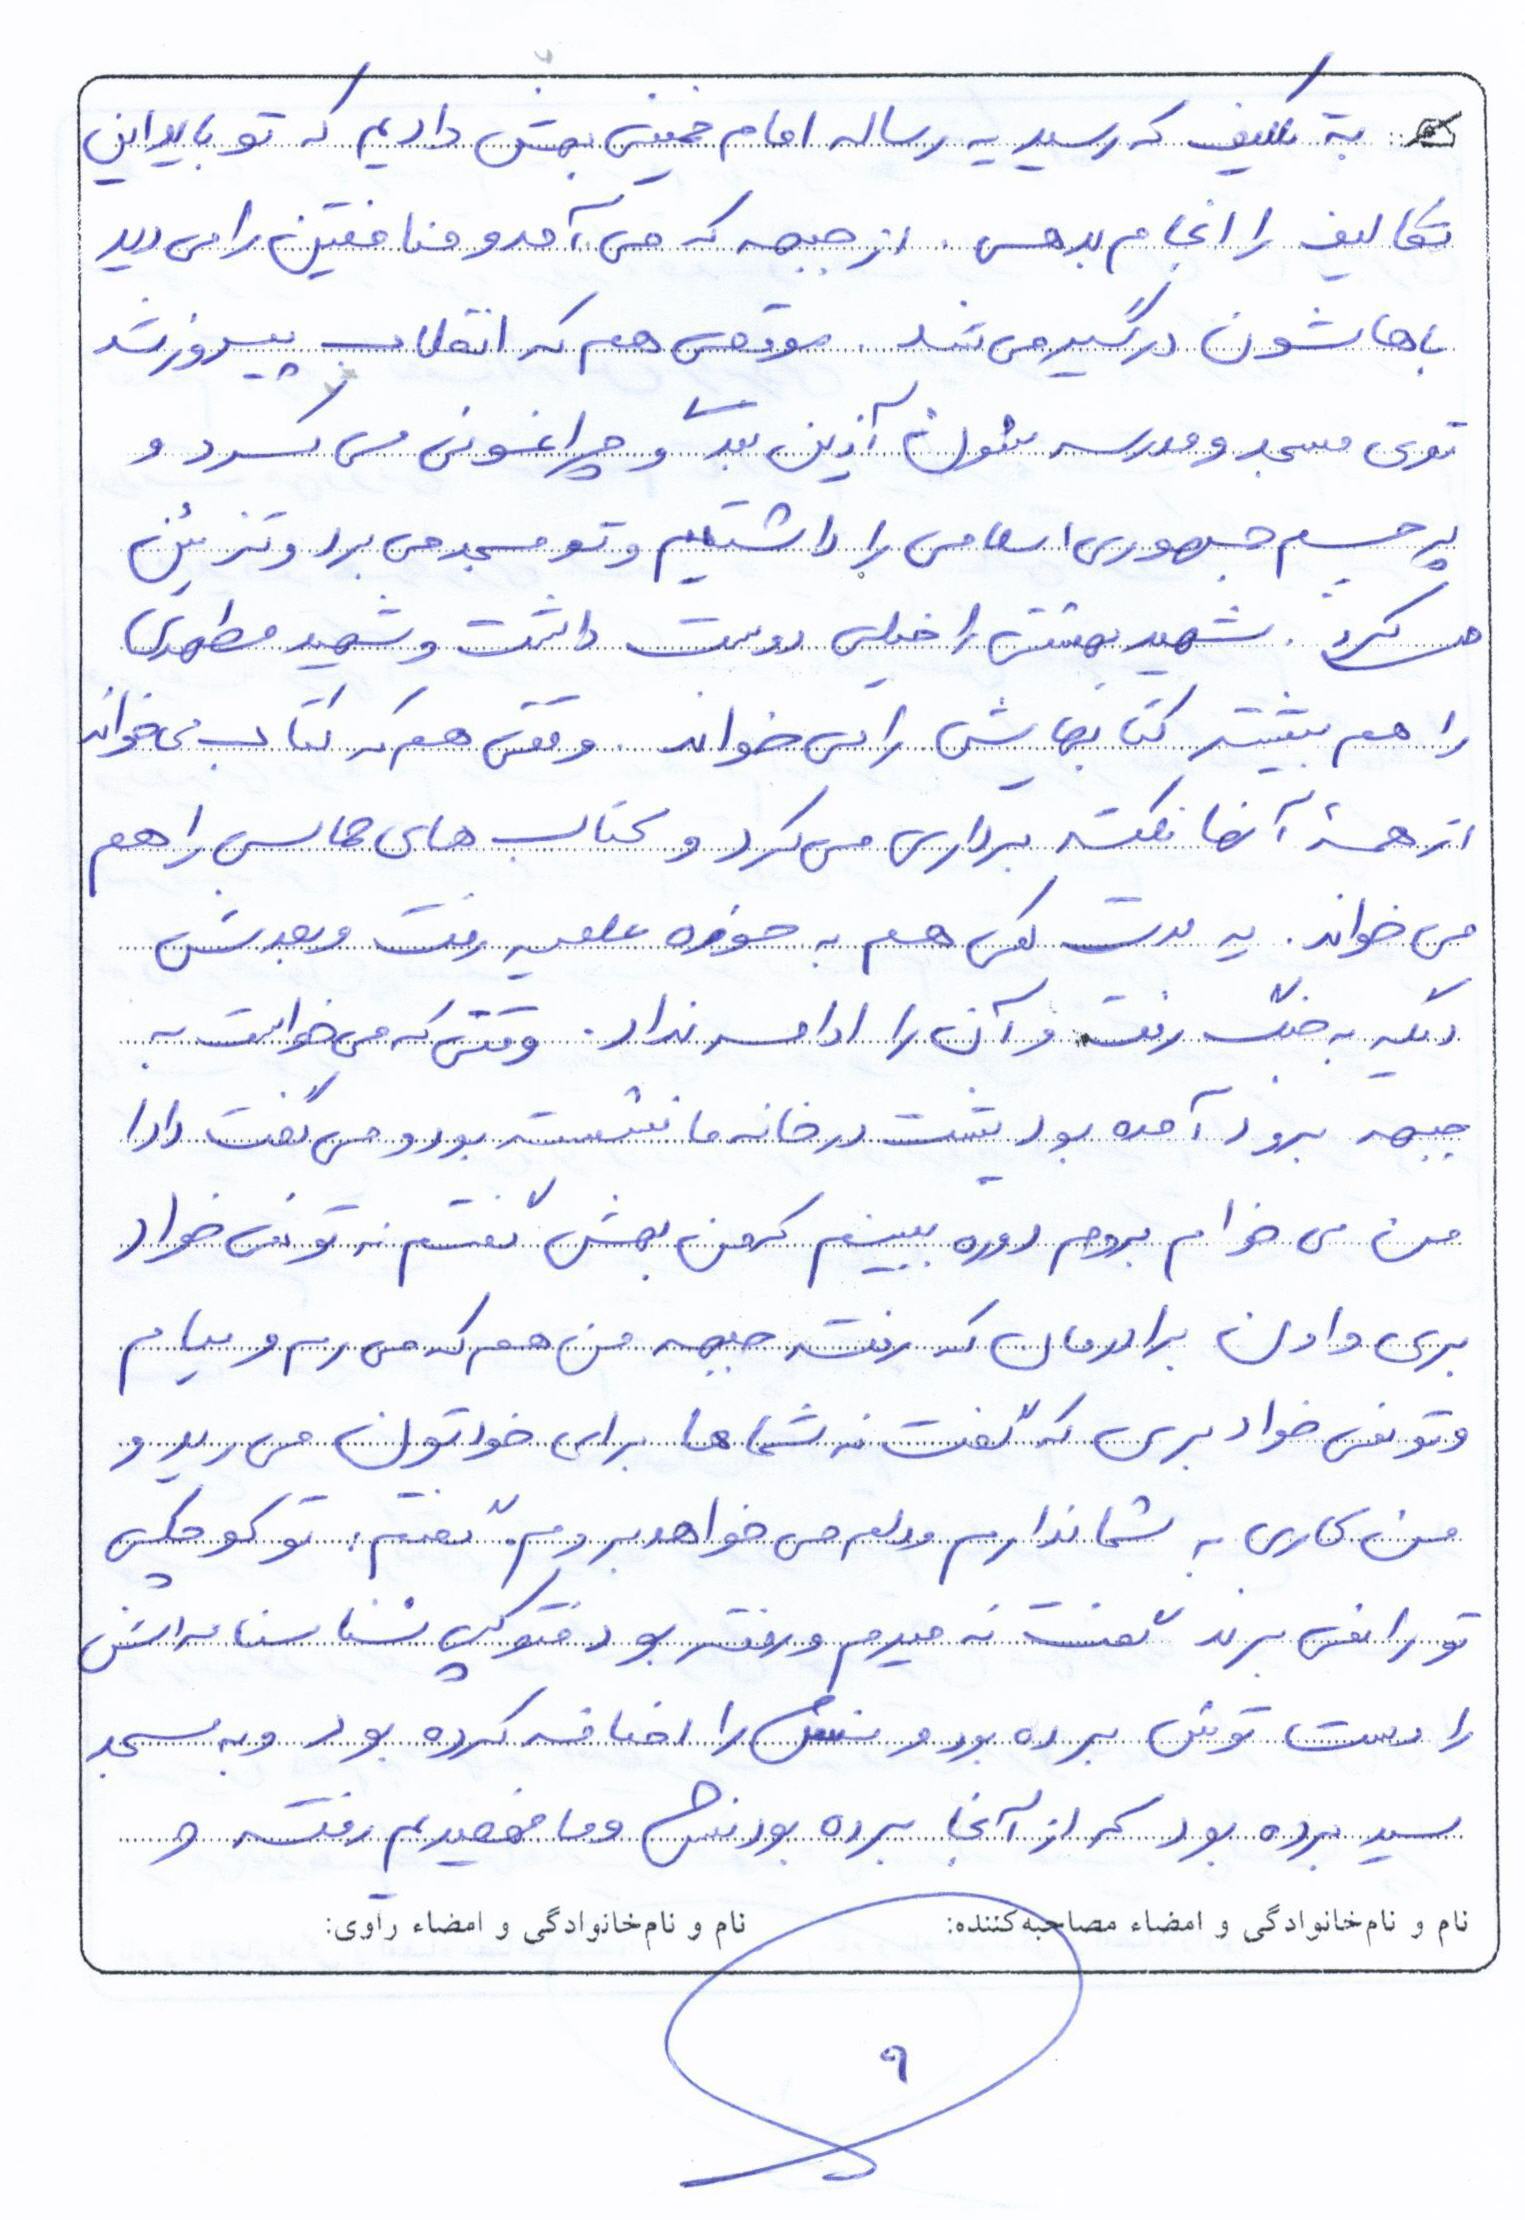 به تکلیف که رسید یه رساله امام خمینی بهش دادیم که تو باید این
تکالیف را انجام بدهی . از جبهه که می آمد و منافقین را می دید
باهاشون درگیر می شد . موقعی هم که انقلاب پیروز شد
توی مسجد و مدرسه شون آذین بند و چراغونی می کرد و
پرچم جمهوری اسلامی را داشتیم و تو مسجد می برد و تزئین
می کرد . شهید بهشتی را خیلی دوست داشت و شهید مطهری
را هم بیشتر کتابهایش را می خواند . وقتی هم که کتاب می خواند
از همهٔ آنها نکته برداری می کرد و کتاب های حماسی را هم
می خواند . یه مدت کمی هم به حوزه علمیه رفت و بعدش
دیگه به جنگ رفت و آن را ادامه نداد . وقتی که می خواست به
جبهه برود آمده بود پشت در خانه ما نشسته بود و می گفت دادا
من می خوام بروم دوره ببینم که من بهش گفتم نه تو نمی خواد
بری داداش برادرمان که رفته جبهه من هم که می رم و میام
و تو نمی خواد بری که گفت نه شماها برای خودتون می رید و
من کاری به شما ندارم دلم می خواهد بروم. گفتم : تو کوچکی
تو را نمی برند گفت نه میرم و رفته بود فتوکپی شناسنامه اش
را دست توش برده بود و سنش را اضافه کرده بود و به مسجد
سید برده بود که از آنجا برده بودنش و ما فهمیدیم رفته و
نام و نام خانوادگی و امضاء مصاحبه کننده: نام و نام خانوادگی و امضاء راوی:
۹